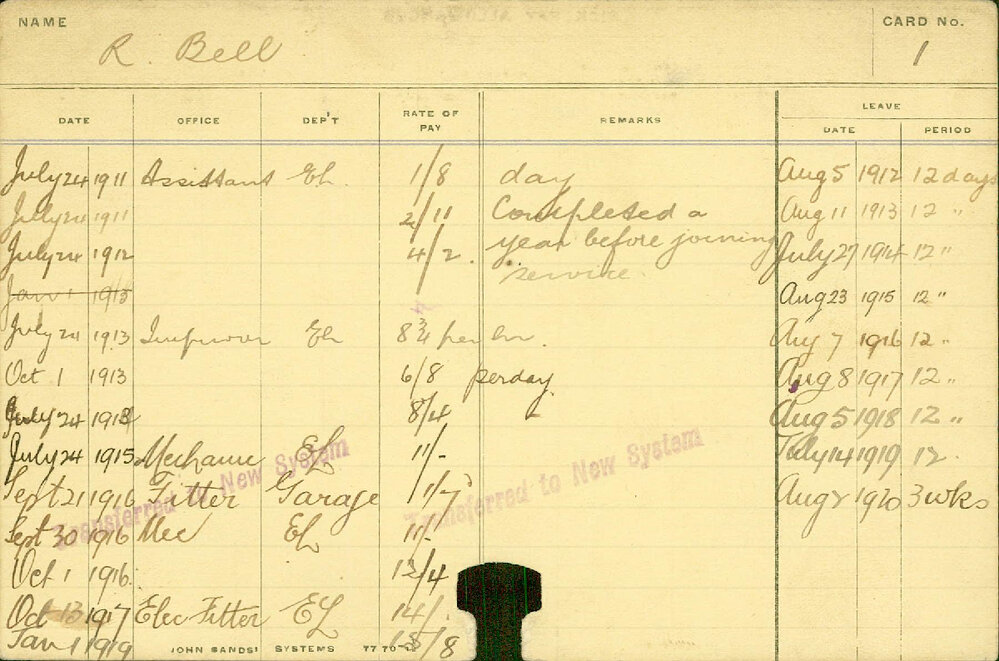 NAME R. Bell CARD No. 1
DATE OFFICE DEP'T RATE OF PAY REMARKS LEAVE DATE PERIOD
July 24 1911 Assistant EL. 1/8 day Aug 5 1912 12 days
July 24 1911 2/11 Completed a Aug 11 1913 12 "
July 24 1912 4/2. year before joining July 27 1914 12 "
service.
Jan 1 1913 Aug 23 1915 12 "
July 24 1913 Improver EL 8 3/4 per hr. Aug 7 1916 12 "
Oct 1 1913 6/8 per day Aug 8 1917 12 "
July 24 8/4 Aug 5 1918 12 "
July 24 1915 Mechanic EL 11/- July 14 1919 12.
Sept 21 1916 Fitter Garage 1/7 Aug 2 1920 3 wks
Transferred to New System Transferred to New System
Sept 30 1916 Mec EL 11/-
Oct 1 1916. 12/4
Oct 13 1917 Elec Fitter EL 14/-
Jan 1 1919 /8
JOHN SANDS' SYSTEMS